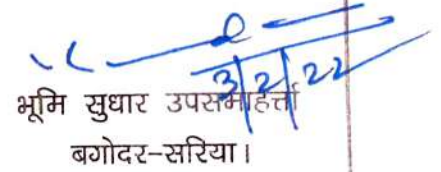 3/2/22
भूमि सुधार उपसमाहर्त्ता
बगोदर-सरिया।